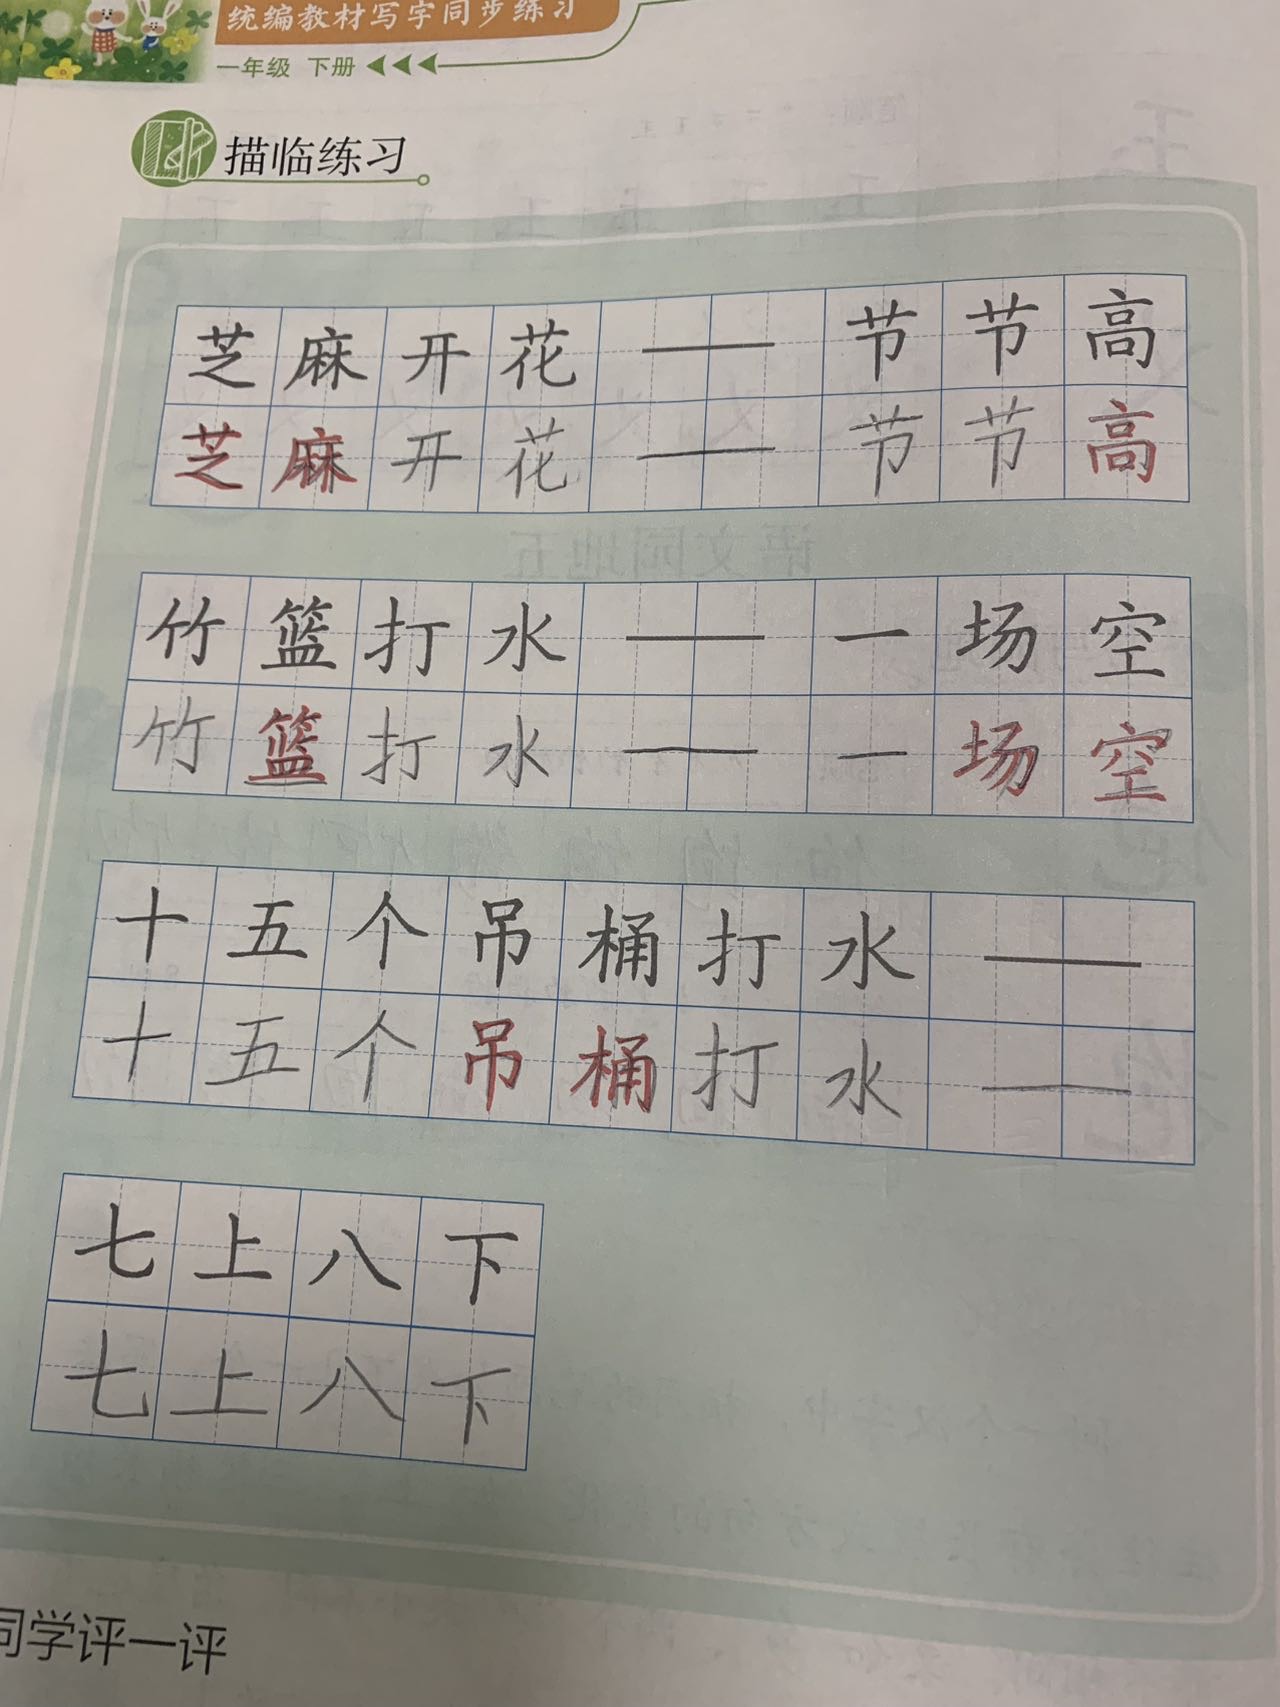 统编教材写字同步练习
一年级 下册
描临练习
芝麻开花——节节高
芝麻开花——节节高
竹篮打水——一场空
竹篮打水——一场空
十五个吊桶打水——
十五个吊桶打水——
七上八下
七上八下
同学评一评